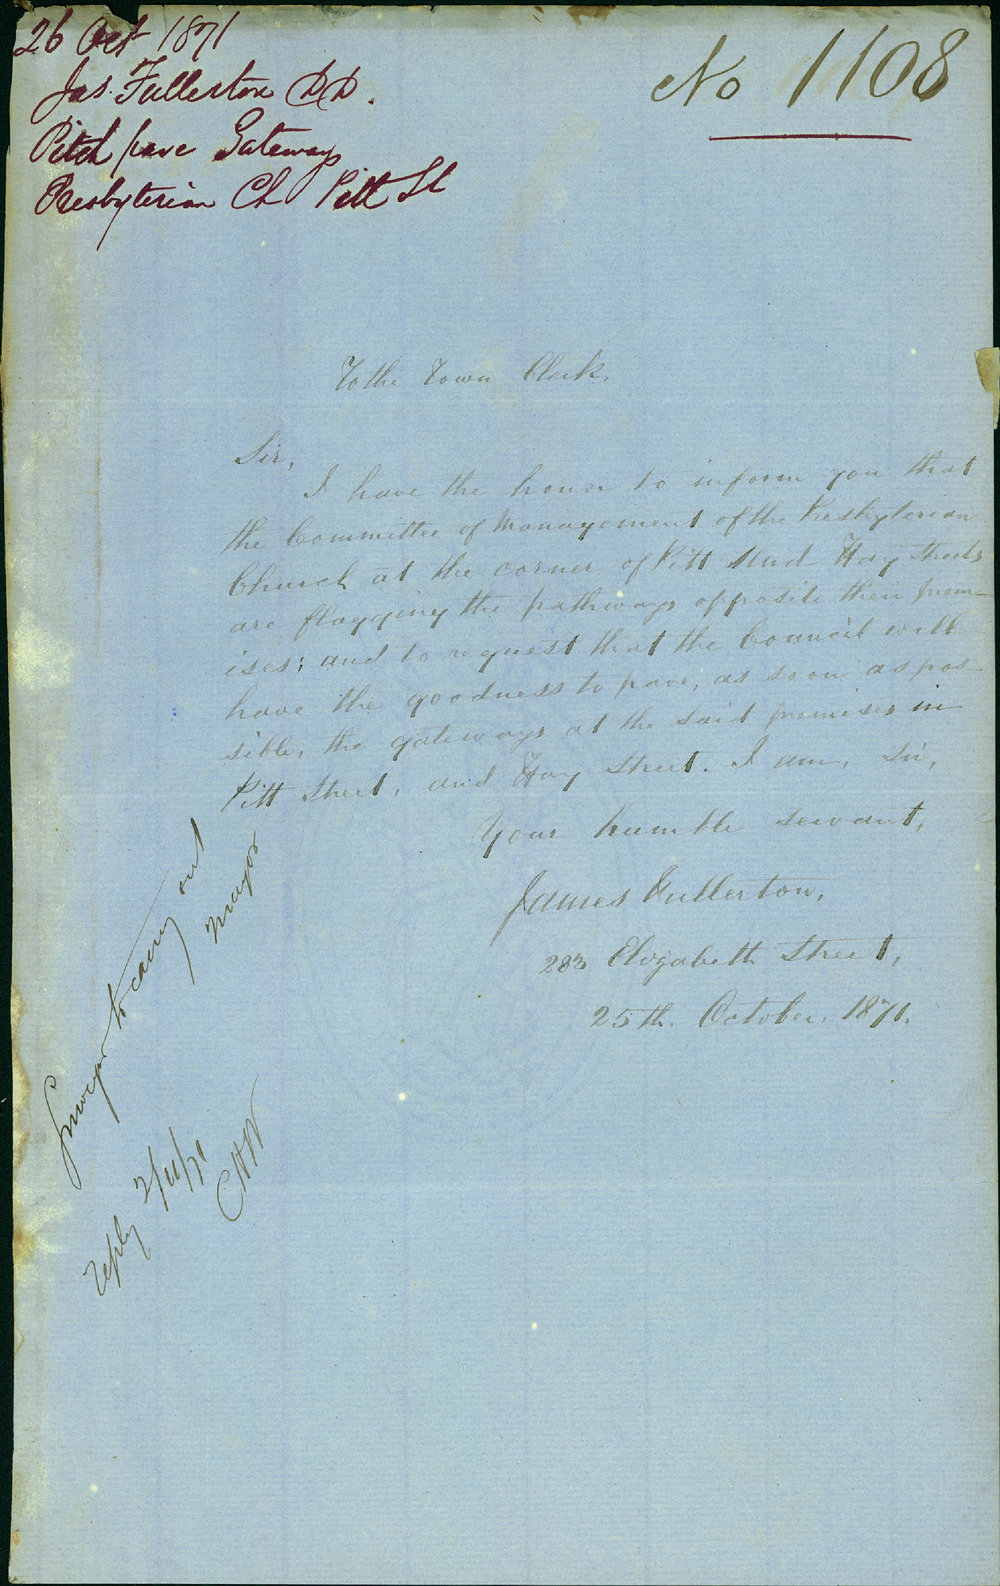 26 Oct 1871
Jas. Fullerton D.D.
Pitch pave Gateways
Presbyterian Ch Pitt St
No 1108
To the Town Clerk.
Sir,
I have the honor to inform you that
the Committee of Management of the Presbyterian
Church at the corner of Pitt and Hay Streets
are flagging the pathways opposite their prem-
ises; and to request that the Council will
have the goodness to pave, as soon as pos-
sible, the gateways at the said premises in
Pitt Street, and Hay Street. I am, Sir,
Your humble servant,
James Fullerton,
283 Elizabeth Street,
25th. October, 1871.
Surveyor to carry out
Mayor
Reply 2/11/71
CHW